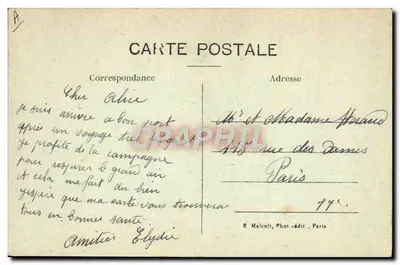 A
CARTE POSTALE
Correspondance
Adresse
Cher Aline
je suis arrivé a bon port
après un voyage très
je profite de la campagne
pour respirer le grand air
et cela me fait du bien
j'espère que ma carte vous trouvera
tous en bonnes santé.
Amitiés Elydie
Mr et Madame
118 rue des Dames
Paris
17e.
E. Malcuit, Phot.-édit., Paris